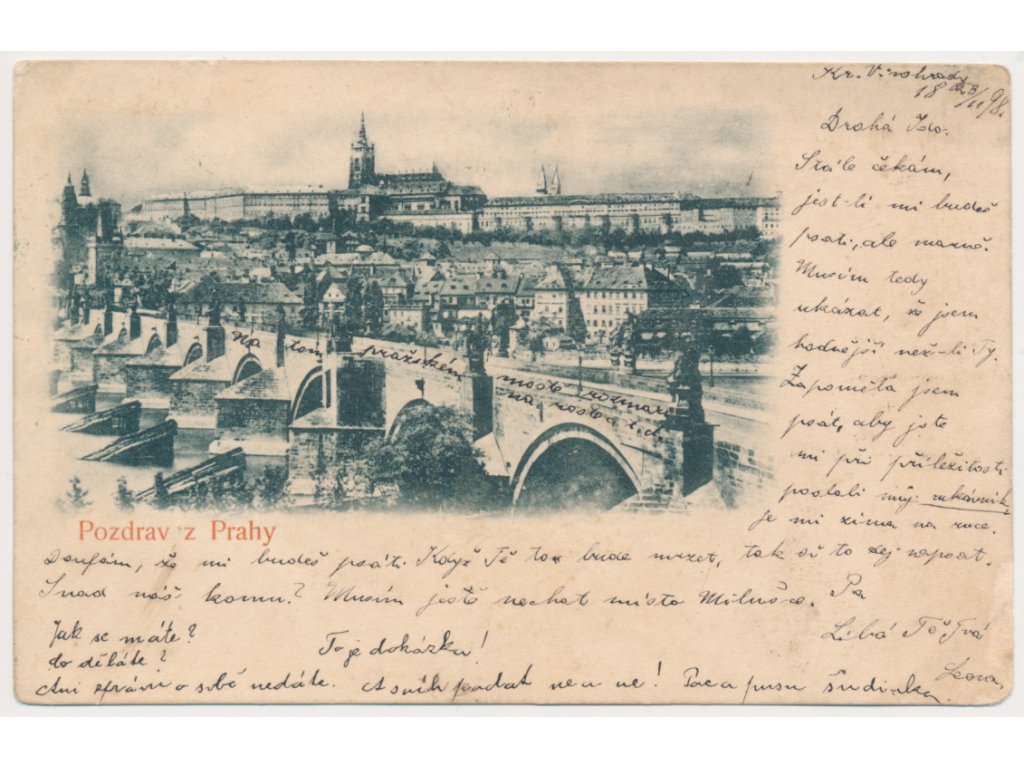 Kr. Vinohrady
18 23/11 98.
Drahá Ido.
Stále čekám,
jest-li mi budeš
psáti, ale marně.
Musím tedy
ukázat, že jsem
hodnější než-li Ty.
Zapoměla jsem
psát, aby jste
mi při příležitosti
poslali můj rukávník,
je mi zima na ruce.
Na tom pražském mostě rozmarý
na roste a t.d.
Pozdrav z Prahy
Doufám, že mi budeš psáti. Když Tě to bude mrzet, tak si to dej napsat.
Snad náš komu? Musím ještě nechat místo Milušce. Pa
Líbá Tě Tvá
Jak se máte?
Co děláte?
To je dokázku!
Ani zpráv o sobě nedáte. A sníh padat ne a ne! Pac a pusu